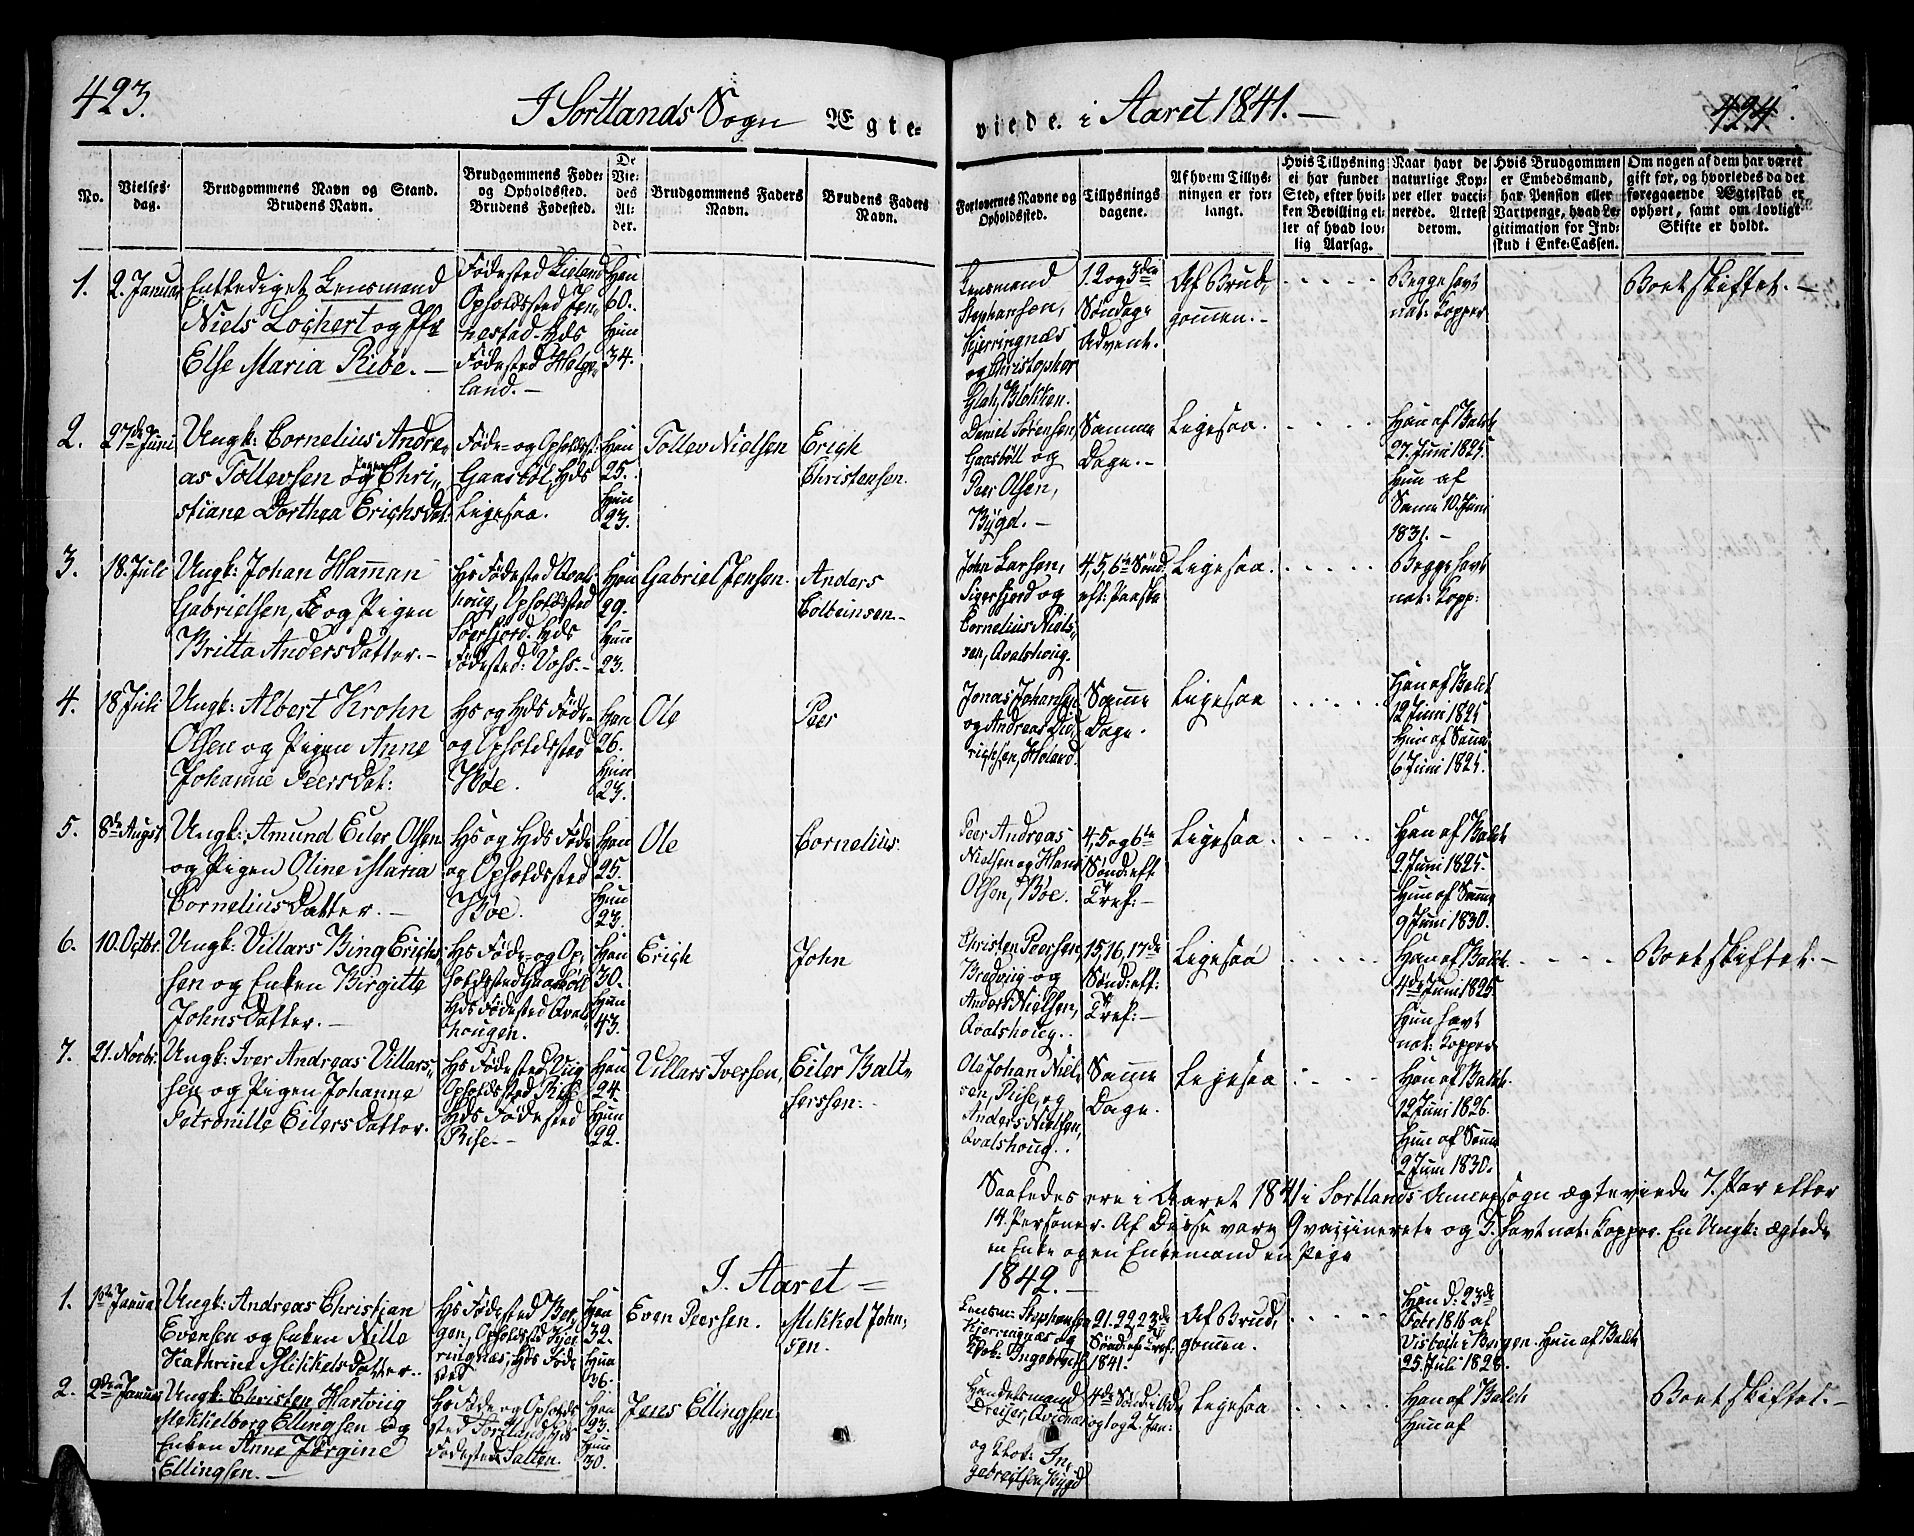 423.
I Sortlands Sogn Ægte-
viede i Aaret 1841.
424.
No.
Vielses-
dag.
Brudgommens Navn og Stand.
Brudens Navn.
Brudgommens Føde-
og Opholdssted.
Brudens Fødested.
De
Vie-
des
Al-
der.
Brudgommens Faders
Navn.
Brudens Faders
Navn.
Forlovernes Navne og
Opholdssted.
Tillysnings
dagene.
Af hvem Tillys-
ningen er for-
langt.
Hvis Tillysning
ei har fundet
Sted, efter hvil-
ken Bevilling el-
ler af hvad lov-
lig Aarsag.
Naar havt de
naturlige Kop-
per eller vacci-
nerede. Attest
derom.
Hvis Brudgommen
er Embedsmand,
har Pension eller
Vartpenge, hvad Le-
gitimation for Ind-
skud i Enke-Cassen.
Om nogen af dem har været
gift før, og hvorledes da det
foregaaende Ægteskab er
ophørt, samt om lovligt
Skifte er holdt.
1.
2. Januar
Entlediget Lensmand
Niels Lochert og Jfr
Else Maria Ribe. -
Opholdssted Jen-
nestad. Hds
Fødested Helge-
land. -
Han
60.
Hun
34.
Lensmand
Stephansen,
Kjerringnæs
og Christopher
Blokken.
1. 2 og 3die
Søndage
Advent.
Af Brud-
gommen. -
Begge havt
nat: Kopper
Boet skiftet. -
2.
27de Juni
Ungk: Cornelius Andre-
as Tollevsen og Pigen Chri-
stiane Dorthea Erichsdat:
Føde- og Opholdsst:
Gaasbøl, Hds
Ligesaa.
Han
25.
Hun
23.
Tollev Nielsen
Erich
Christensen.
Daniel Sørensen,
Gaasbøll og
Peer Olsen,
Bÿgd. -
Samme
Dage. -
Ligesaa.
Han af Balch
27. Juni 1825
Hun af
Samme 10. Juni
1831. -
3.
18. Juli
Ungk: Johan Haman
Gabrielsen, og Pigen
Britta Andersdatter. -
Hs Fødested Qval-
houg, Opholdssted
Hds
Fødested: Voss. -
Han
29.
Hun
23.
Gabriel Jensen.
Anders
Colbeinsen. -
John Larsen,
Sigerfjord og
Cornelius Niels-
sen, Qvalshoug.
4, 5, 6te Sønd
eft: Paaske
Ligesaa.
Begge havt
nat: Kopp:
4.
18 Juli
Ungk: Albert Krohn
Olsen og Pigen Anne
Johanne Peersdat:
Hs og Hds Føde-
og Opholdssted
Bøe.
Han
26.
Hun
23.
Ole
Peer
Jonas Johansen
og Andreas Die-
richsen, Holand.
Samme
Dage.
Ligesaa
Han af Balch
12 Juni 1825
Hun af Samme
6 Juni 1825.
5.
8de Augst.
Ungk: Amund Eiler Olsen
og Pigen Oline Maria
Corneliusdatter. -
Hs og Hds Føde
og Opholdssted
Bøe.
Han
25.
Hun
23.
Ole
Cornelius.
Peer Andreas
Nielsen og Hans
Olsen, Bøe.
4, 5 og 6te
Sønd: eft.
Tref: -
Ligesaa.
Han af Balch
2. Juni 1825.
Hun af Samme
9 Juni 1830.
6.
10. Octbr.
Ungk: Villars Bing Erich-
sen og Enken Birgitte
Johnsdatter. -
Hs Føde- og Op-
holdssted Gaasbøll
Hds Fødested Qvals-
hougen.
Han
30.
Hun
43.
Erich
John
Christen Peersen,
Bredvig og
Anders Nielsen,
Qvalshoug.
15, 16, 17de
Sønd: eft:
Tref: -
Ligesaa
Han af Balch
4de Juni 1825.
Hun havt
nat: Kopper
Boet skiftet. -
7.
21. Novbr.
Ungk: Iver Andreas Villars-
sen og Pigen Johanne
Petronille Eilersdatter.
Hs Fødested Vig
Opholdssted Rise
Hds Fødested
Rise. -
Han
24.
Hun
22.
Villars Iversen,
Eiler Balt-
sersen. -
Ole Johan Niel-
sen, Rise, og
Anders Nielsen,
Qvalshoug.
Samme
Dage.
Ligesaa
Han af Balch
12 Juni 1826.
Hun af Samme
2 Juni 1830.
Saaledes ere i Aaret 1841 i Sortlands Annexsogn ægteviede 7. Par eller
14. Personer. Af Disse vare 9 vaccinerede og 5. havt nat: Kopper. En Ungk: ægtede
en Enke og en Enkemand en Pige
I Aaret =
1842. -
1.
1ste Januar
Ungk: Andreas Christian
Evensen og Enken Nille
Kathrine Mikkelsdatter.
Hs Fødested Ber-
gen, Opholdssted Kjer-
ringnæs, Hds Føde
sted
Han
32.
Hun
36.
Even Peersen.
Mikkel John-
sen.
Lensm: Stephansen
Kjerringnæs og
21. 22. 23de
Sønd: eft Tref.
1841.
Af Brud-
gommen.
Han d: 23de
Febr 1816 af
i Bergen. Hun af Balch
25 Juli 1828.
2.
2den Januar
Ungk: Christen Hartvig
Mekkelborg Ellingsen og
Enken Anne Jørgine
Ellingsen. -
Hs Føde og Opholds
sted Sortland Hds
Fødested Salten.
Han
23.
Hun
30.
Jens Ellingsen
Handelsmand
Dreyer,
og In-
gebrigtsen, Bygd
4de Sønd: i Adv
og 1 og 2. Jan:
Ligesaa
Han af Balch
Hun af
Boet skiftet. -